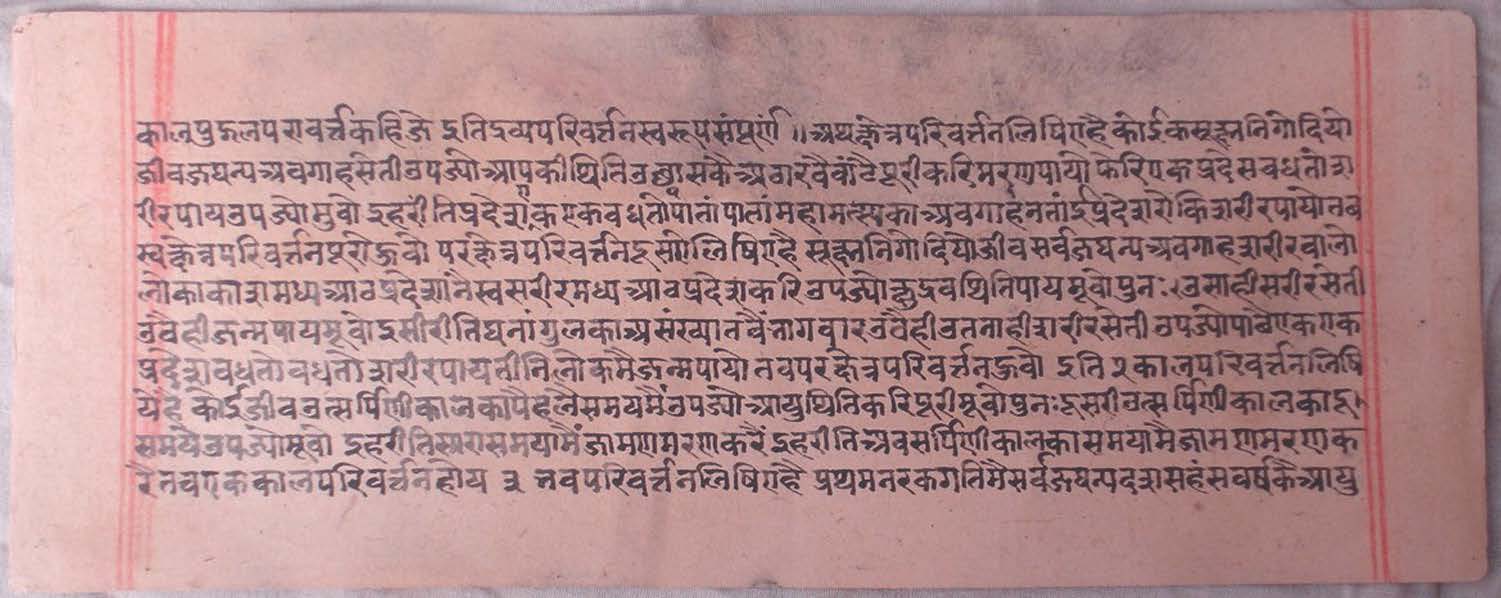 कालपुद्गलपरावर्त्तकहिजे इतिद्रव्यपरिवर्त्तनस्वरूपसंपूर्णं ॥ अथक्षेत्रपरिवर्त्तनलिषिएहै कोईकसूक्ष्मनिगोदियो
जीवजघन्यअवगाहसेतीउपज्यो आपकीथिति पूरीकरिमरणपायो फेरिएकप्रदेसवधतोश
रीरपायउपज्योमुवो इहरीतिप्रदेशएकएकवधतोपातांपातांमहामत्स्यकाअवगाहनतांईप्रदेशरोकिशरीरपायोतब
स्वक्षेत्रपरिवर्त्तनपूरोहुवो परक्षेत्रपरिवर्त्तनइसोलिषिएहै सूक्ष्मनिगोदियोजीवसर्वजघन्यअवगाहशरीरवालो
लोकाकाशमध्यआठप्रदेशांनैस्वसरीरमध्यआठप्रदेशकरिउपज्योक्षुद्रवथितिपायमूवोपुनः उसाहीसरीरसेती
उवैहीजन्मपायमूवोइसीरीतिघनांगुलकाअसंख्यातवैंभागवारउवैहीउतनाहीशरीरसेतीउपज्योपाछैएकएक
प्रदेशवधतोवधतोशरीरपायतीनलोकमैजन्मपायो तबपरक्षेत्रपरिवर्त्तनहुवो इति २ कालपरिवर्त्तनलिषि
येहै कोईजीवउत्सर्पिणीकालकापैहलैसमयमैंउपज्योआयुथितिकरिपूरीमूवोपुनःदूसरीउत्सर्पिणीकालकादू
समयैउपज्योमूवो इहरीतिसारासमयामैंजामणमरणकरैंइहरीतिअवसर्पिणीकालकासमयामैजामणमरणक
रैतबएककालपरिवर्त्तनहोय ३ भवपरिवर्त्तनलिषिएहै प्रथमनरकगतिमैसर्वजघन्यदशसहंसवर्षकैआयु